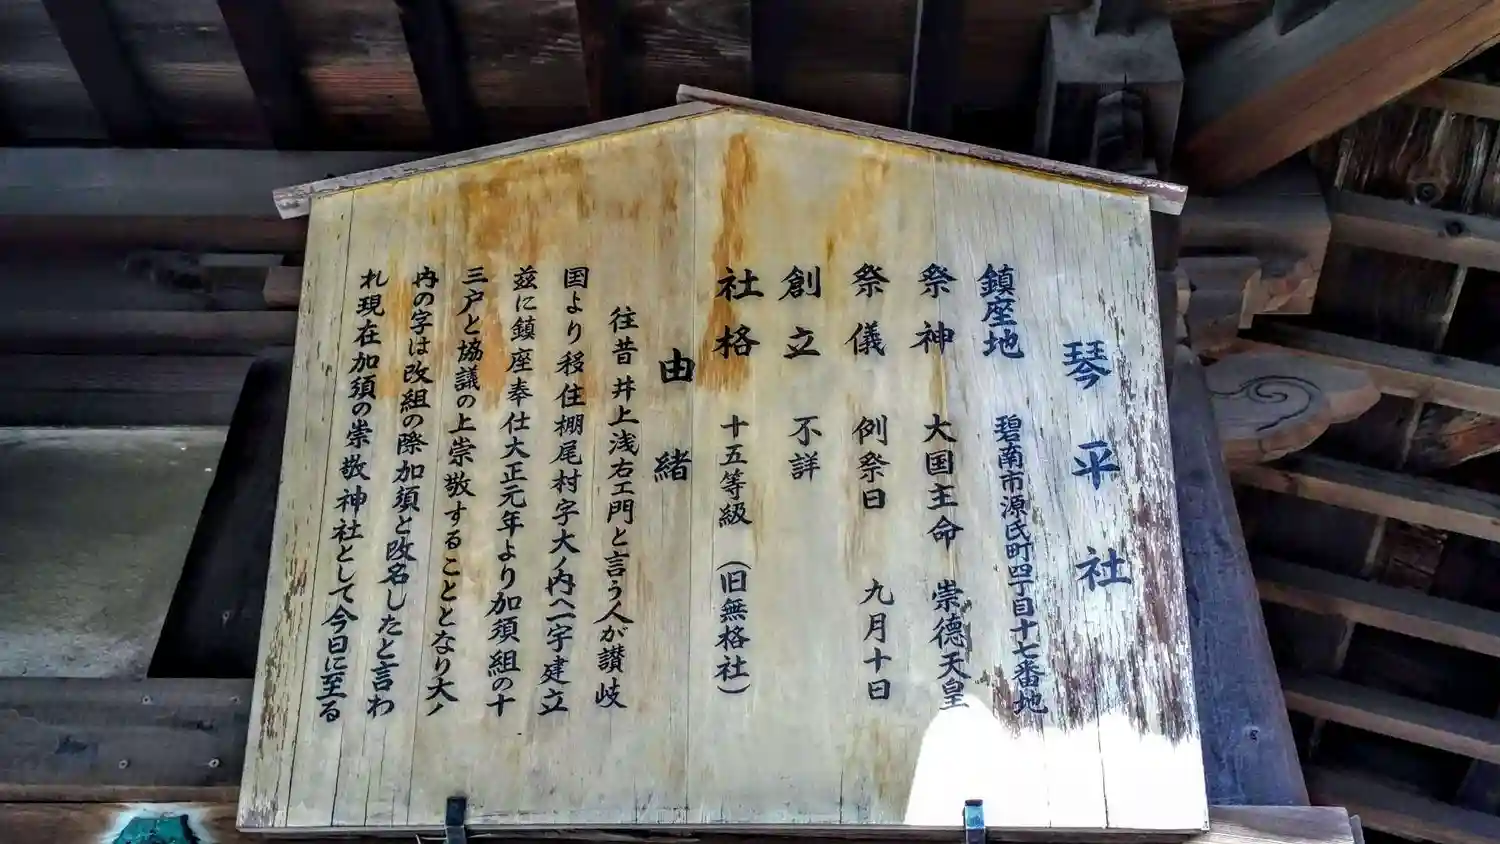 琴平社
鎮座地 碧南市源氏町四丁目十七番地
祭神 大国主命 崇徳天皇
祭儀 例祭日 九月十日
創立 不詳
社格 十五等級（旧無格社）
由緒
往昔井上浅右エ門と言う人が讃岐
国より移住棚尾村字大ノ内へ一宇建立
茲に鎮座奉仕大正元年より加須組の十
三戸と協議の上崇敬することとなり大ノ
内の字は改組の際加須と改名したと言わ
れ現在加須の崇敬神社として今日に至る